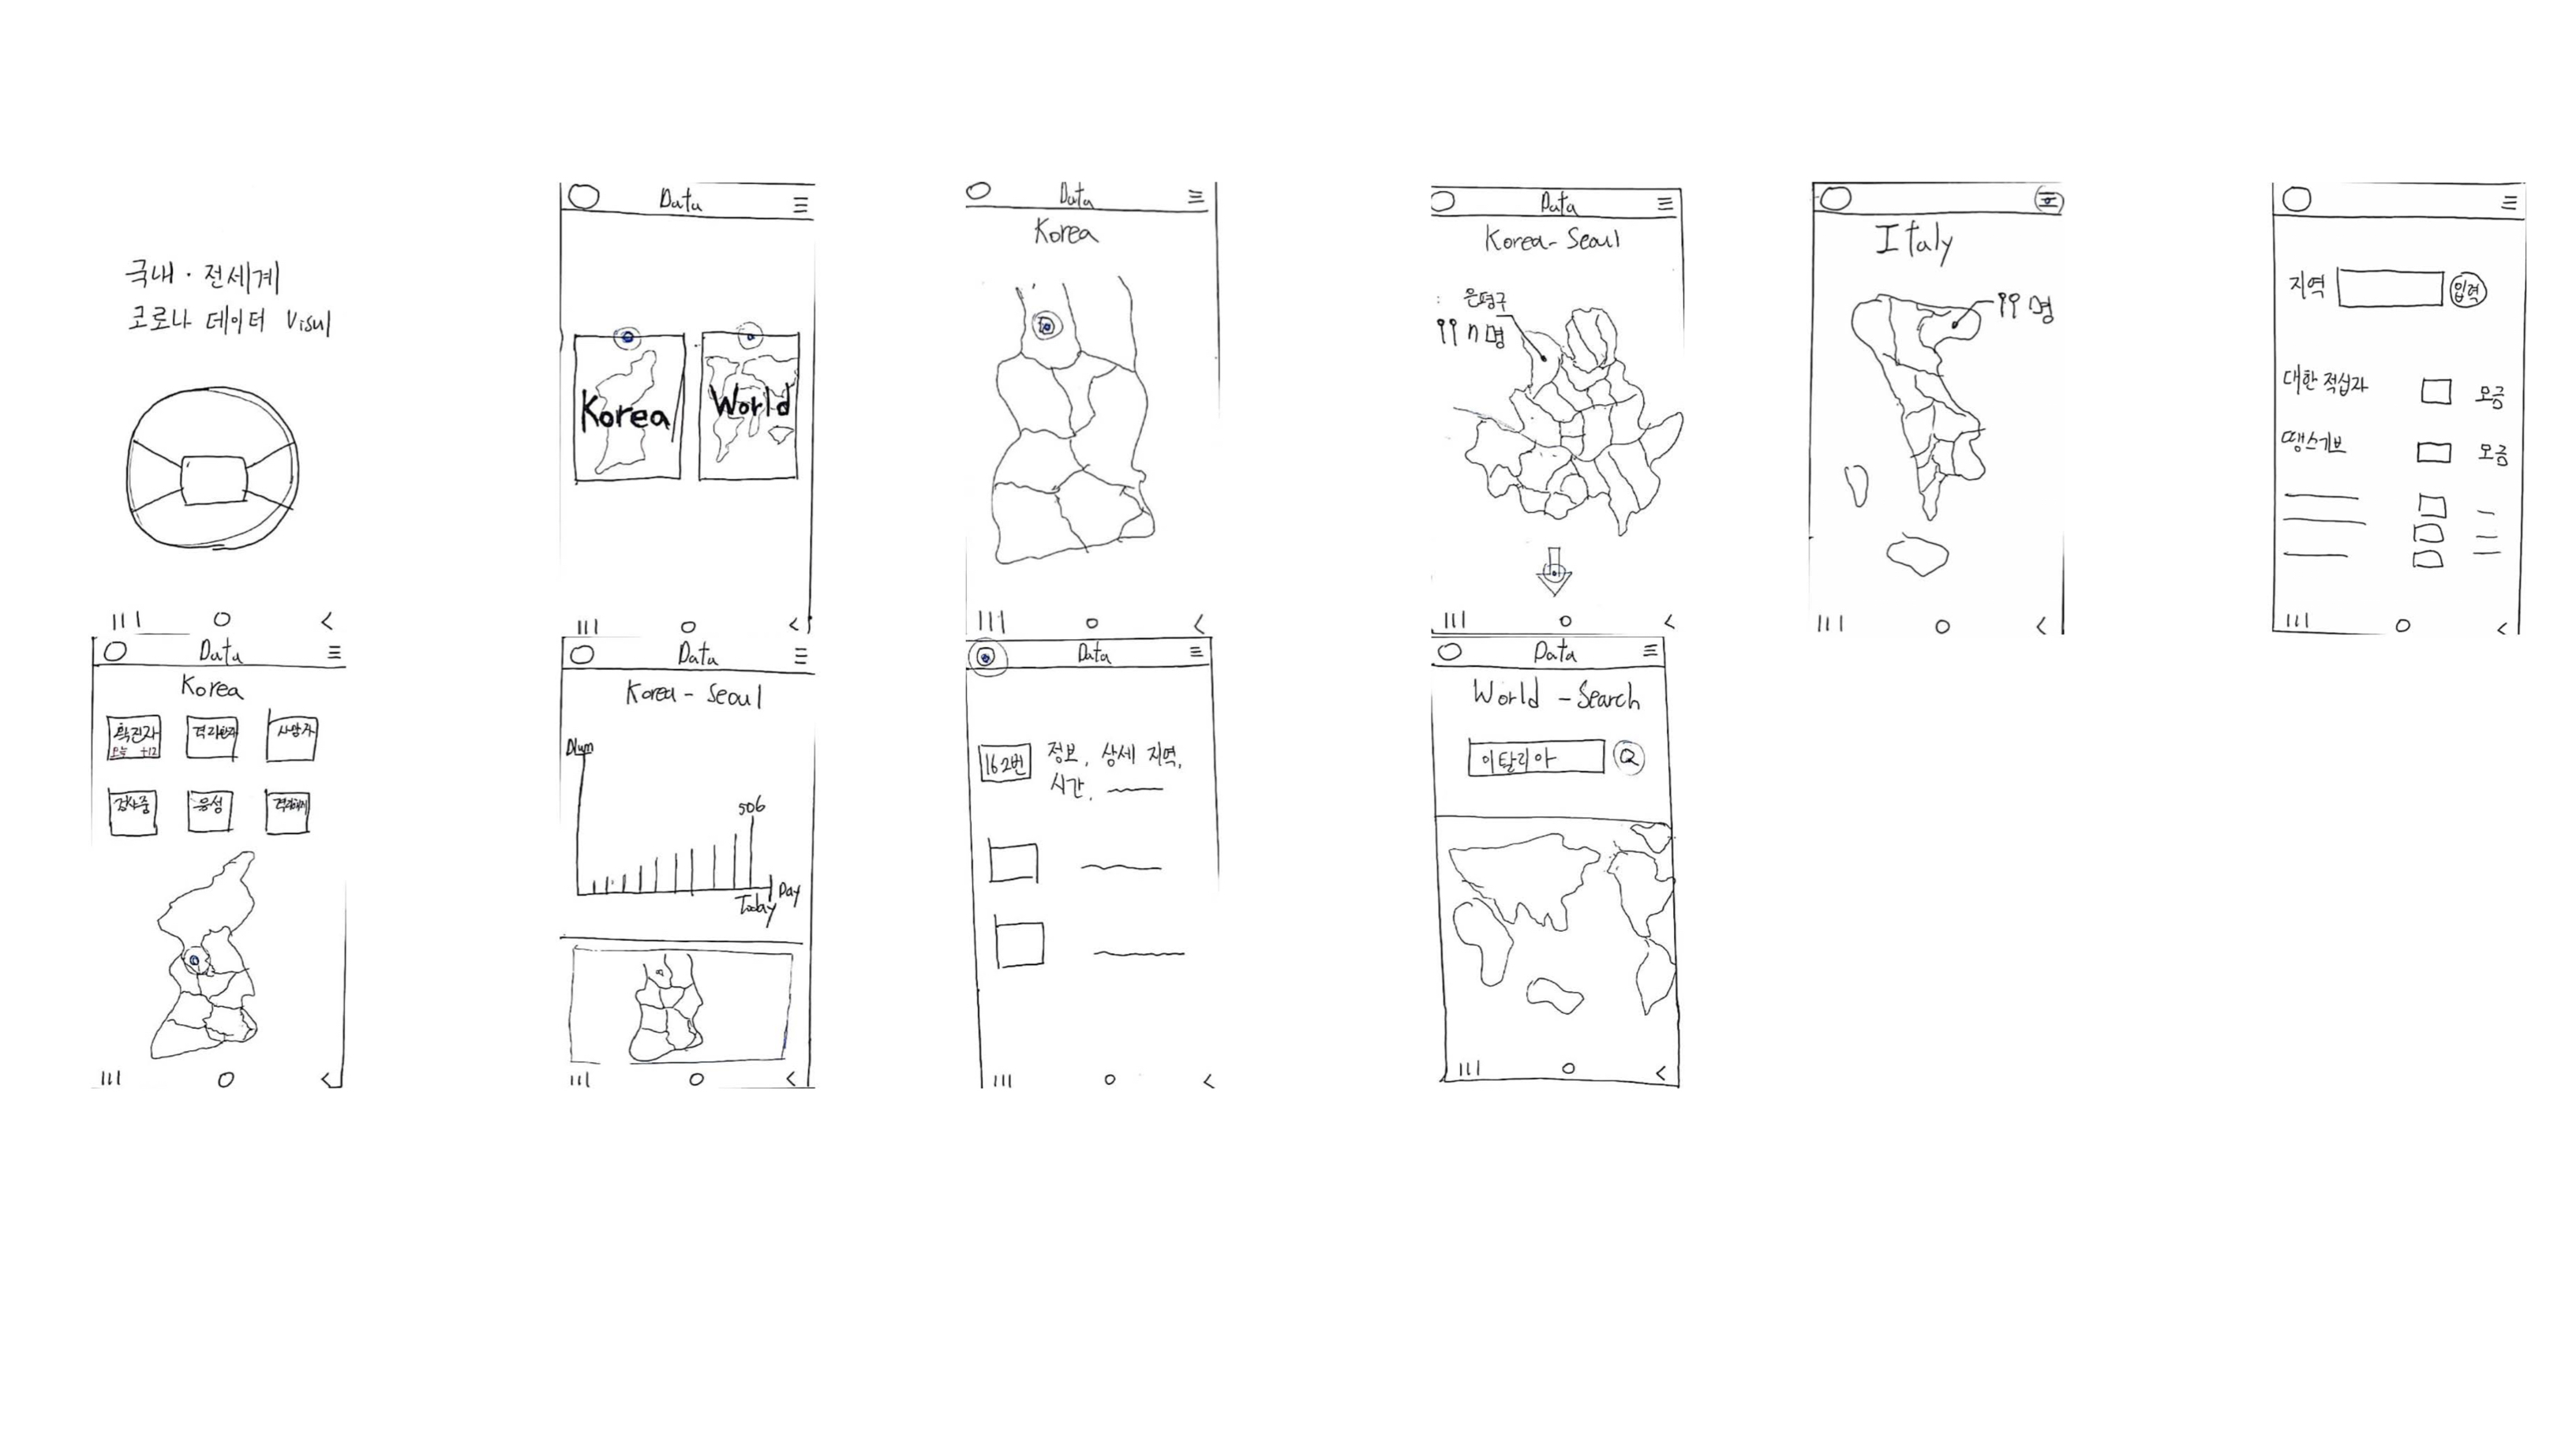 국내 · 전세계
코로나 데이터 Visul
Data
Korea
World
Data
Korea
Data
Korea - Seoul
은평구
n명
Italy
명
지역
입력
대한 적십자
모금
땡스기브
모금
Data
Korea
확진자
오늘 +12
격리환자
사망자
검사중
음성
격리해제
Data
Korea - Seoul
506
Day
Today
Data
162번
정보, 상세 지역,
시간,
Data
World - Search
이탈리아